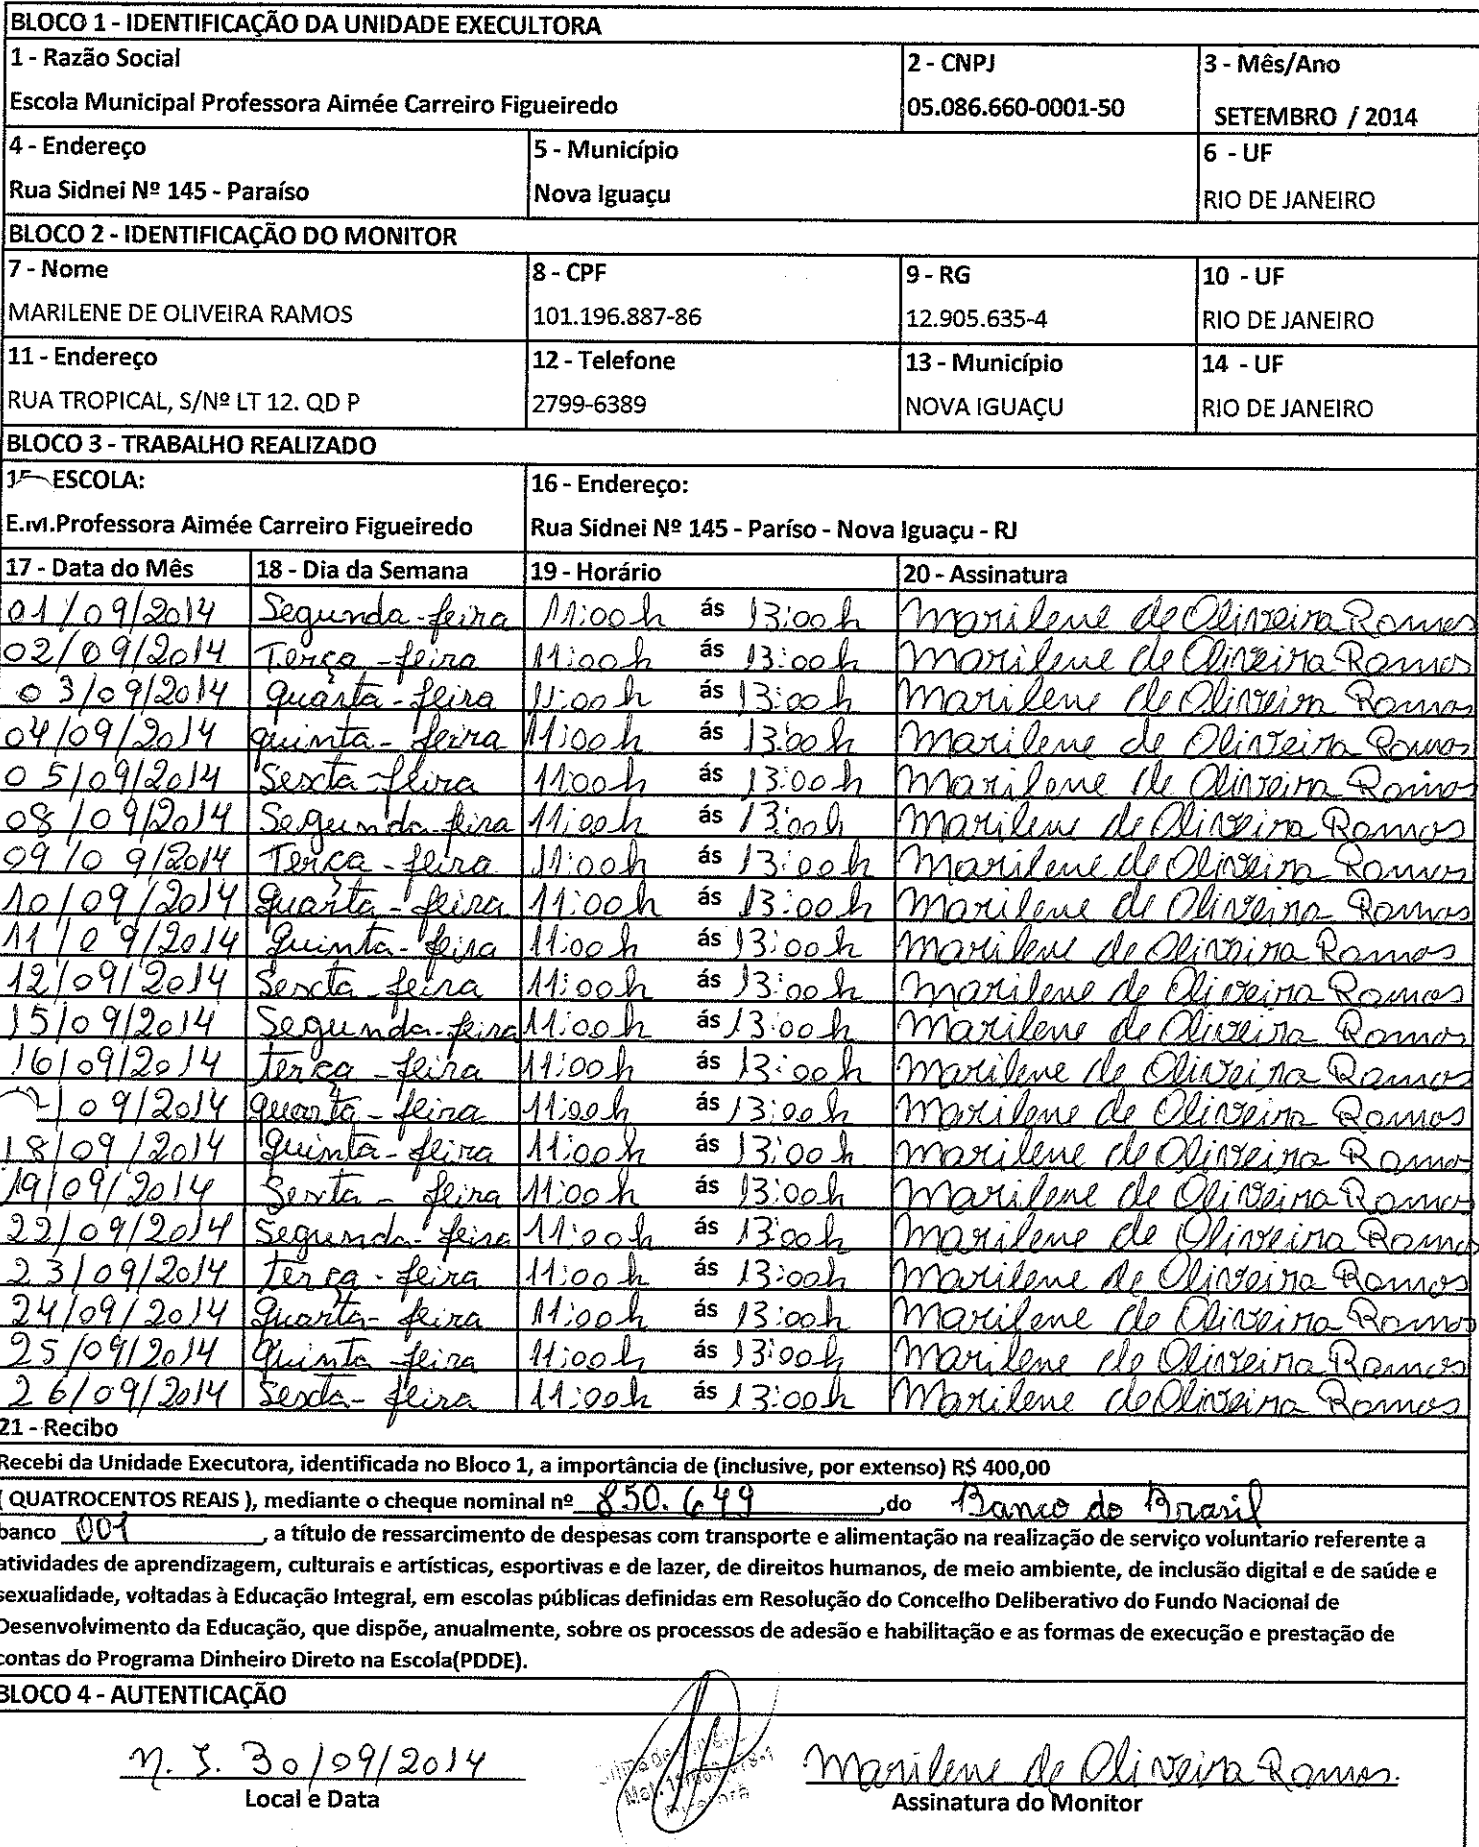 BLOCO 1 - IDENTIFICAÇÃO DA UNIDADE EXECULTORA
1 - Razão Social 2 - CNPJ 3 - Mês/Ano
Escola Municipal Professora Aimée Carreiro Figueiredo 05.086.660-0001-50 SETEMBRO / 2014
4 - Endereço 5 - Município 6 - UF
Rua Sidnei Nº 145 - Paraíso Nova Iguaçu RIO DE JANEIRO
BLOCO 2 - IDENTIFICAÇÃO DO MONITOR
7 - Nome 8 - CPF 9 - RG 10 - UF
MARILENE DE OLIVEIRA RAMOS 101.196.887-86 12.905.635-4 RIO DE JANEIRO
11 - Endereço 12 - Telefone 13 - Município 14 - UF
RUA TROPICAL, S/Nº LT 12. QD P 2799-6389 NOVA IGUAÇU RIO DE JANEIRO
BLOCO 3 - TRABALHO REALIZADO
15 ESCOLA: 16 - Endereço:
E.M.Professora Aimée Carreiro Figueiredo Rua Sidnei Nº 145 - Paríso - Nova Iguaçu - RJ
17 - Data do Mês 18 - Dia da Semana 19 - Horário 20 - Assinatura
01/09/2014 Segunda-feira 11:00h ás 13:00h Marilene de Oliveira Ramos
02/09/2014 Terça-feira 11:00h ás 13:00h Marilene de Oliveira Ramos
03/09/2014 quarta-feira 11:00h ás 13:00h Marilene de Oliveira Ramos
04/09/2014 quinta-feira 11:00h ás 13:00h Marilene de Oliveira Ramos
05/09/2014 Sexta-feira 11:00h ás 13:00h Marilene de Oliveira Ramos
08/09/2014 Segunda-feira 11:00h ás 13:00h Marilene de Oliveira Ramos
09/09/2014 Terça-feira 11:00h ás 13:00h Marilene de Oliveira Ramos
10/09/2014 quarta-feira 11:00h ás 13:00h Marilene de Oliveira Ramos
11/09/2014 quinta-feira 11:00h ás 13:00h Marilene de Oliveira Ramos
12/09/2014 Sexta-feira 11:00h ás 13:00h Marilene de Oliveira Ramos
15/09/2014 Segunda-feira 11:00h ás 13:00h Marilene de Oliveira Ramos
16/09/2014 terça-feira 11:00h ás 13:00h Marilene de Oliveira Ramos
/09/2014 quarta-feira 11:00h ás 13:00h Marilene de Oliveira Ramos
18/09/2014 quinta-feira 11:00h ás 13:00h Marilene de Oliveira Ramos
19/09/2014 Sexta-feira 11:00h ás 13:00h Marilene de Oliveira Ramos
22/09/2014 Segunda-feira 11:00h ás 13:00h Marilene de Oliveira Ramos
23/09/2014 terça-feira 11:00h ás 13:00h Marilene de Oliveira Ramos
24/09/2014 quarta-feira 11:00h ás 13:00h Marilene de Oliveira Ramos
25/09/2014 quinta-feira 11:00h ás 13:00h Marilene de Oliveira Ramos
26/09/2014 Sexta-feira 11:00h ás 13:00h Marilene de Oliveira Ramos
21 - Recibo
Recebi da Unidade Executora, identificada no Bloco 1, a importância de (inclusive, por extenso) R$ 400,00
( QUATROCENTOS REAIS ), mediante o cheque nominal nº 850.649 ,do Banco do Brasil
banco 001 , a título de ressarcimento de despesas com transporte e alimentação na realização de serviço voluntario referente a
atividades de aprendizagem, culturais e artísticas, esportivas e de lazer, de direitos humanos, de meio ambiente, de inclusão digital e de saúde e
sexualidade, voltadas à Educação Integral, em escolas públicas definidas em Resolução do Concelho Deliberativo do Fundo Nacional de
Desenvolvimento da Educação, que dispõe, anualmente, sobre os processos de adesão e habilitação e as formas de execução e prestação de
contas do Programa Dinheiro Direto na Escola(PDDE).
BLOCO 4 - AUTENTICAÇÃO
N. I. 30/09/2014 Marilene de Oliveira Ramos.
Local e Data Assinatura do Monitor